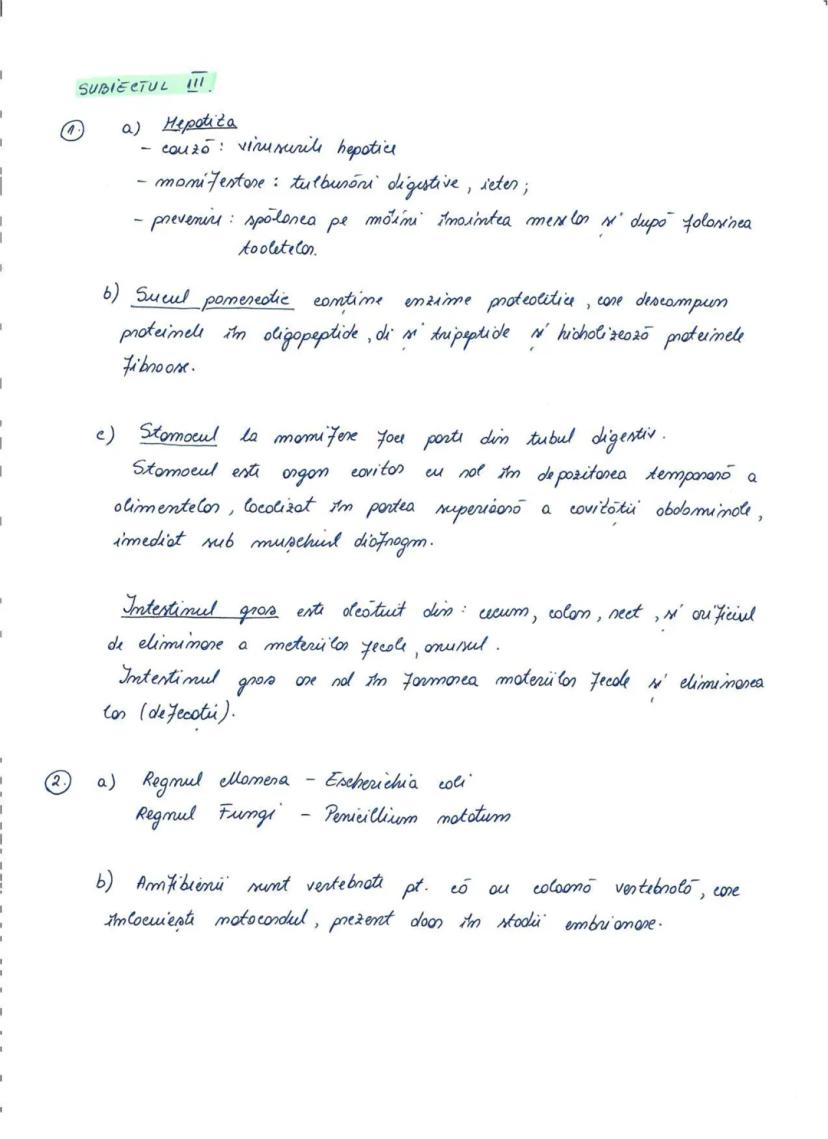 SUBIECTUL III.
1. a) Hepatita
- cauză: virusurile hepatice
- manifestare: tulburări digestive, icter;
- prevenire: spălarea pe mâini înaintea meselor și după folosirea
toaletelor.
b) Sucul pancreatic conține enzime proteolitice, care descompun
proteinele în oligopeptide, di și tripeptide și hidrolizează proteinele
fibroase.
c) Stomacul la mamifere face parte din tubul digestiv.
Stomacul este organ cavitar cu rol în depozitarea temporară a
alimentelor, localizat în partea superioară a cavității abdominale,
imediat sub mușchiul diafragm.
Intestinul gros este alcătuit din: cecum, colon, rect, și orificiul
de eliminare a materiilor fecale, anusul.
Intestinul gros are rol în formarea materiilor fecale și eliminarea
lor (defecație).
2. a) Regnul Monera - Escherichia coli
Regnul Fungi - Penicillium notatum
b) Amfibienii sunt vertebrate pt. că au coloană vertebrală, care
înlocuiește notocordul, prezent doar în stadii embrionare.